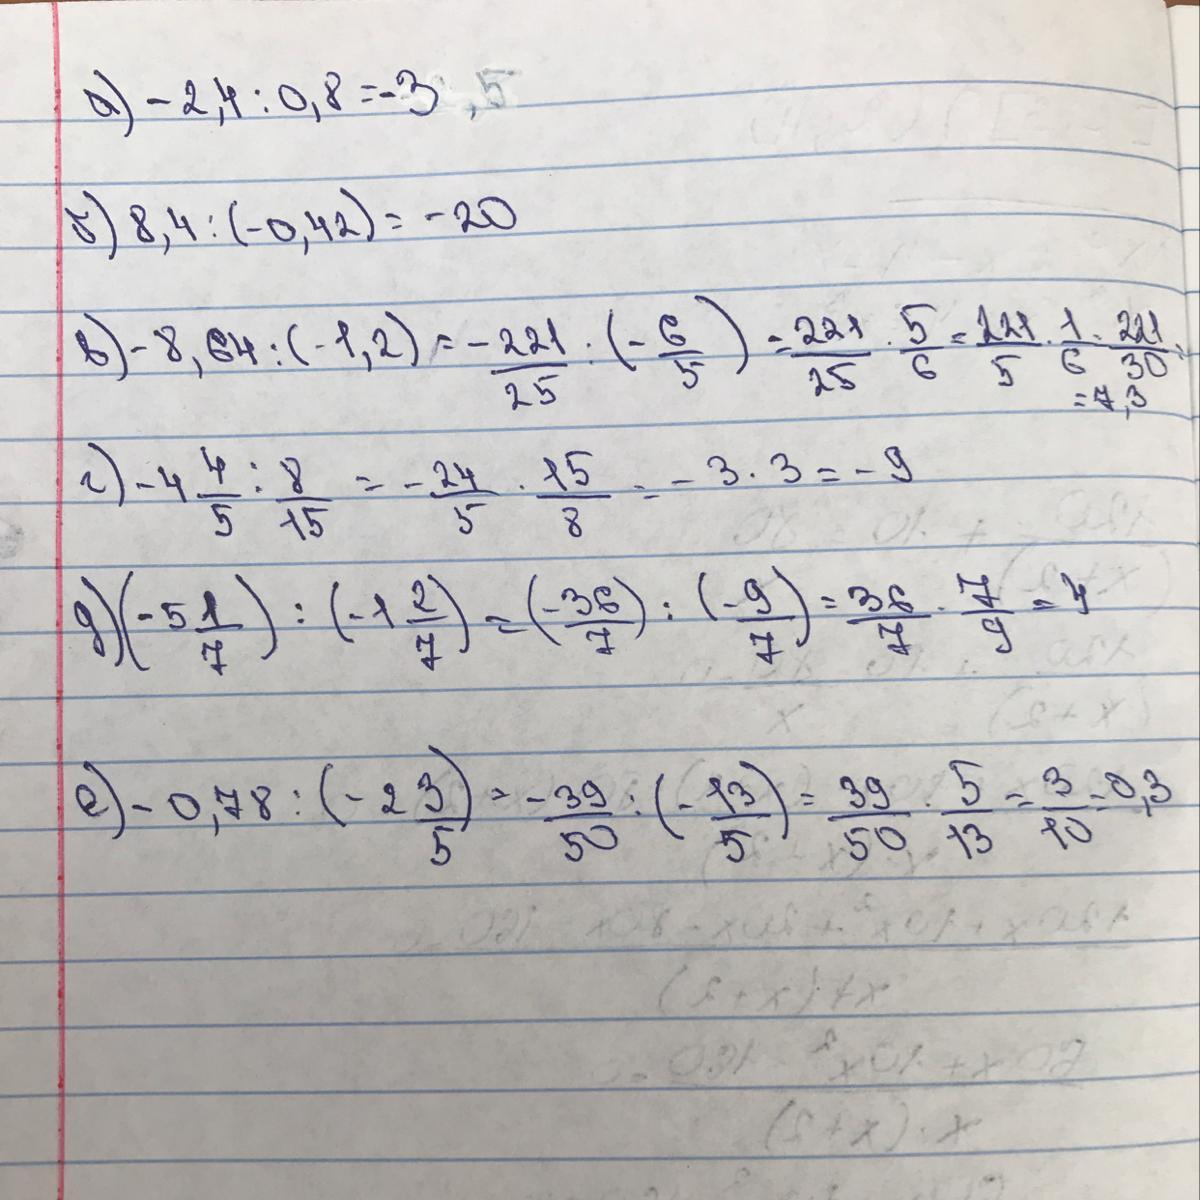 а) -2,4 : 0,8 = -3
б) 8,4 : (-0,42) = -20
в) -8,64 : (-1,2) = -221/25 : (-6/5) = 221/25 · 5/6 = 221/5 · 1/6 = 221/30 =
= 7,3
г) -4 4/5 : 8/15 = -24/5 · 15/8 = -3 · 3 = -9
д) (-5 1/7) : (-1 2/7) = (-36/7) : (-9/7) = 36/7 · 7/9 = 4
е) -0,78 : (-2 3/5) = -39/50 : (-13/5) = 39/50 · 5/13 = 3/10 = 0,3